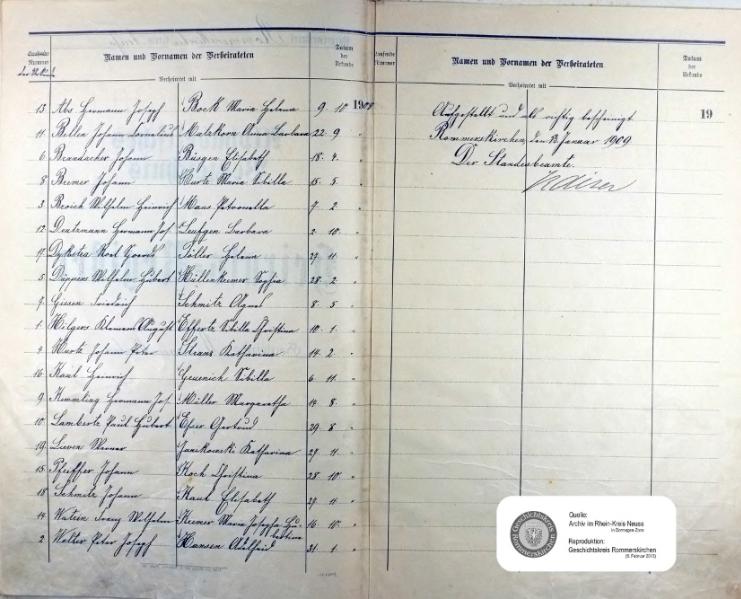 Laufende Nummer
der Urkunde
Namen und Vornamen der Verheirateten
Verheiratet mit
Datum der Urkunde
13 Abs Hermann Joseph Bock Maria Helena 9 10 1908
11 Bella Johann Cornelius Malzkorn Anna Barbara 22 9 "
6 Brandacher Johann Rüsgen Elisabeth 18 4 "
8 Bremer Johann Kurtz Maria Sibilla 15 5 "
3 Broich Wilhelm Heinrich Maus Petronella 7 2 "
12 Deutzmann Hermann Jos. Leufgen Barbara 2 10 "
17 Dykstra Söller Helena 27 11 "
5 Düppers Wilhelm Hubert Hüllenkremer Sophia 28 2 "
7 Giesen Friedrich Schmitz Agnes 8 5 "
1 Hilgers Klemens August Efferts Sibilla Christina 10 1 "
4 Johann Peter Straus Katharina 14 2 "
16 Kaul Heinrich Geuenich Sibilla 6 11 "
9 Kemmerling Hermann Jos. Müller Margaretha 14 8 "
10 Lambertz Paul Hubert Esser Gertrud 29 8 "
19 Lieven Werner Janskowski Katharina 27 11 "
15 Pfeiffer Johann Koch Christina 28 10 "
18 Schmitz Johann Kaul Elisabeth 27 11 "
14 Franz Wilhelm Kremer Maria Josepha Hu-
bertina 16 10 "
2 Wolter Peter Joseph Hansen Adelheid 31 1 "
Laufende Nummer
Namen und Vornamen der Verheirateten
Verheiratet mit
Datum der Urkunde
19
Aufgestellt und als richtig bescheinigt
Rommerskirchen, den 12 Januar 1909
Der Standesbeamte.
Geschichtskreis
Rommerskirchen
Quelle:
Archiv im Rhein-Kreis Neuss
in Dormagen-Zons
Reproduktion:
Geschichtskreis Rommerskirchen